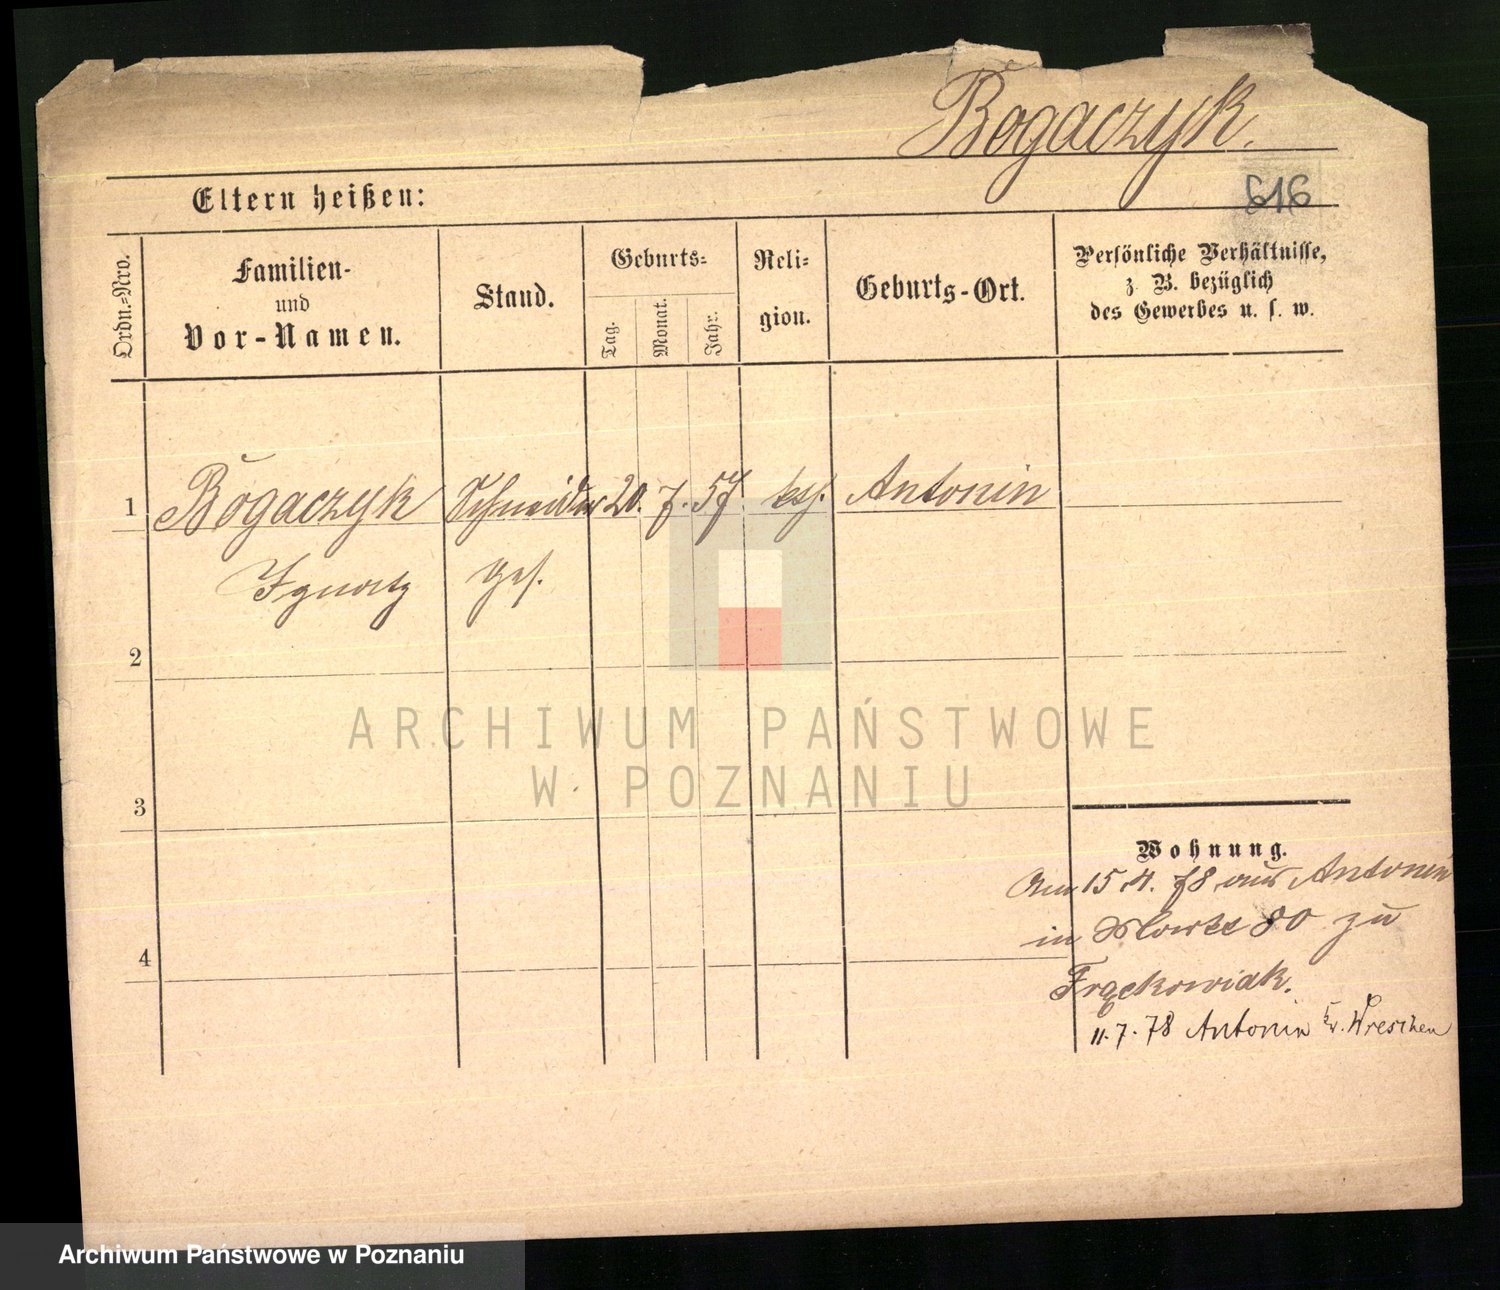 Bogaczyk.
616
Eltern heißen:
Ordn.-Nro.
Familien-
und
Vor-Namen.
Stand.
Geburts-
Tag.
Monat.
Jahr.
Reli-
gion.
Geburts-Ort.
Persönliche Verhältnisse,
z. B. bezüglich
des Gewerbes u. s. w.
1 Bogaczyk Schneider 20. 7. 57. kath. Antonin
Ignatz Ges.
2
3
4
Wohnung.
Am 15.4.78 aus Antonin
in 80 zu
Frąckowiak.
11.7.78 Antonin Kr. Wreschen
ARCHIWUM PAŃSTWOWE
W POZNANIU
Archiwum Państwowe w Poznaniu